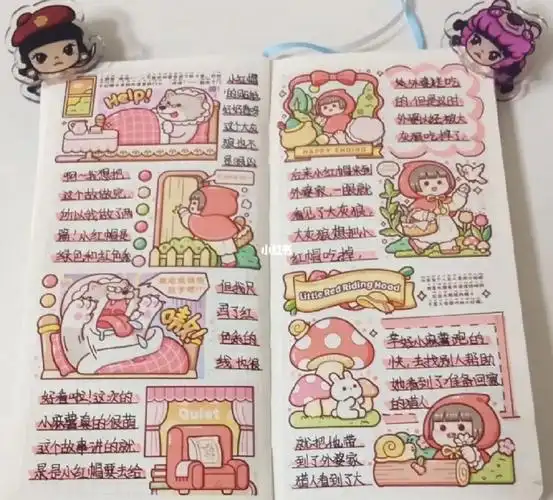 Help!
小红帽
的贴纸
好好看呀
这个大灰
狼也不
是很凶
啊~我想把
这个故做完
所以我做了两
篇!小红帽是
绿色和红色系
但我只
用了红
色系的
线,也很
好看啦!这次的
小麻薯真的很萌
这个故事讲的就
是是小红帽要去给
Quiet
HAPPY ENDING
外婆
的,但是这时
外婆以经被大
灰狼吃掉了
后来小红帽来到
外婆家,一眼就
看见了大灰狼,
大灰狼想把小
红帽吃掉,
Little Red Riding Hood
幸好小麻薯跑的
快,去找别人帮助
她看到了准备回家
的猎人
就把他带
到了外婆家
猎人看到了大
小红书